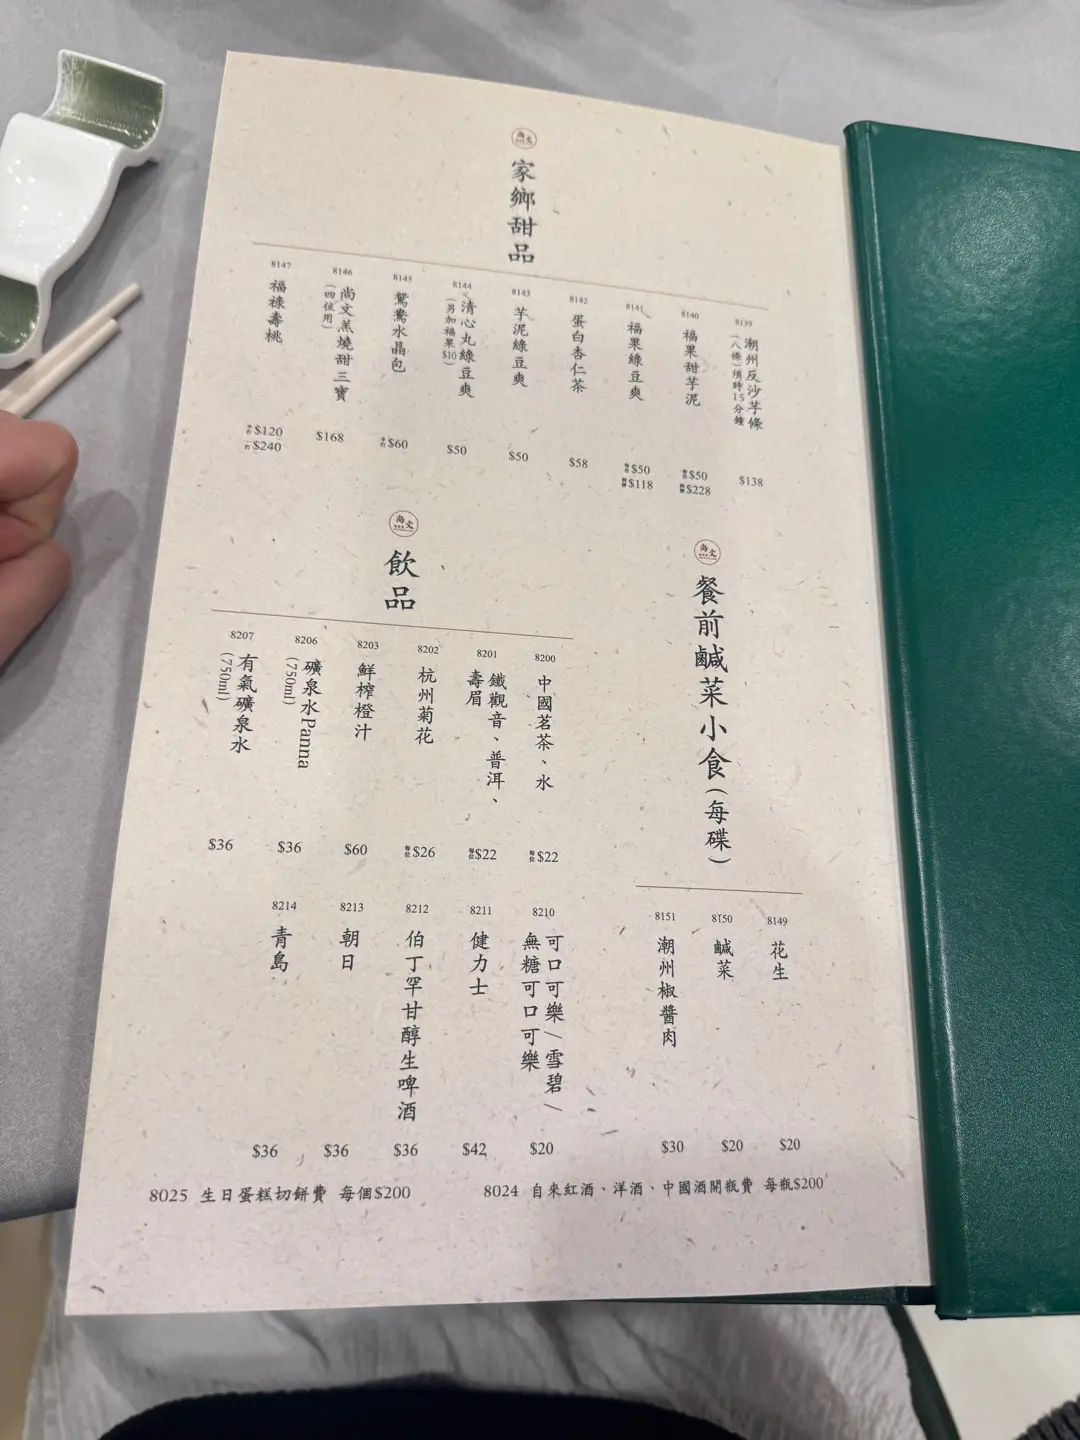 尚文
家鄉甜品
8139
潮州反沙芋條
(八條)須時15分鐘
$138
8140
福果甜芋泥
每位$50
$228
8141
福果綠豆爽
每位$50
$118
8142
蛋白杏仁茶
$58
8143
芋泥綠豆爽
$50
8144
清心丸綠豆爽
(另加福果$10)
$50
8145
鴛鴦水晶包
$60
8146
尚文羔燒甜三寶
(四位用)
$168
8147
福祿壽桃
$120
$240
尚文
餐前鹹菜小食(每碟)
8149
花生
$20
8150
鹹菜
$20
8151
潮州椒醬肉
$30
尚文
飲品
8200
中國茗茶、水
每位$22
8201
鐵觀音、普洱、
壽眉
每位$22
8202
杭州菊花
每位$26
8203
鮮榨橙汁
$60
8206
礦泉水Panna
(750ml)
$36
8207
有氣礦泉水
(750ml)
$36
8210
可口可樂/雪碧/
無糖可口可樂
$20
8211
健力士
$42
8212
伯丁罕甘醇生啤酒
$36
8213
朝日
$36
8214
青島
$36
8024 自來紅酒、洋酒、中國酒開瓶費 每瓶$200
8025 生日蛋糕切餅費 每個$200